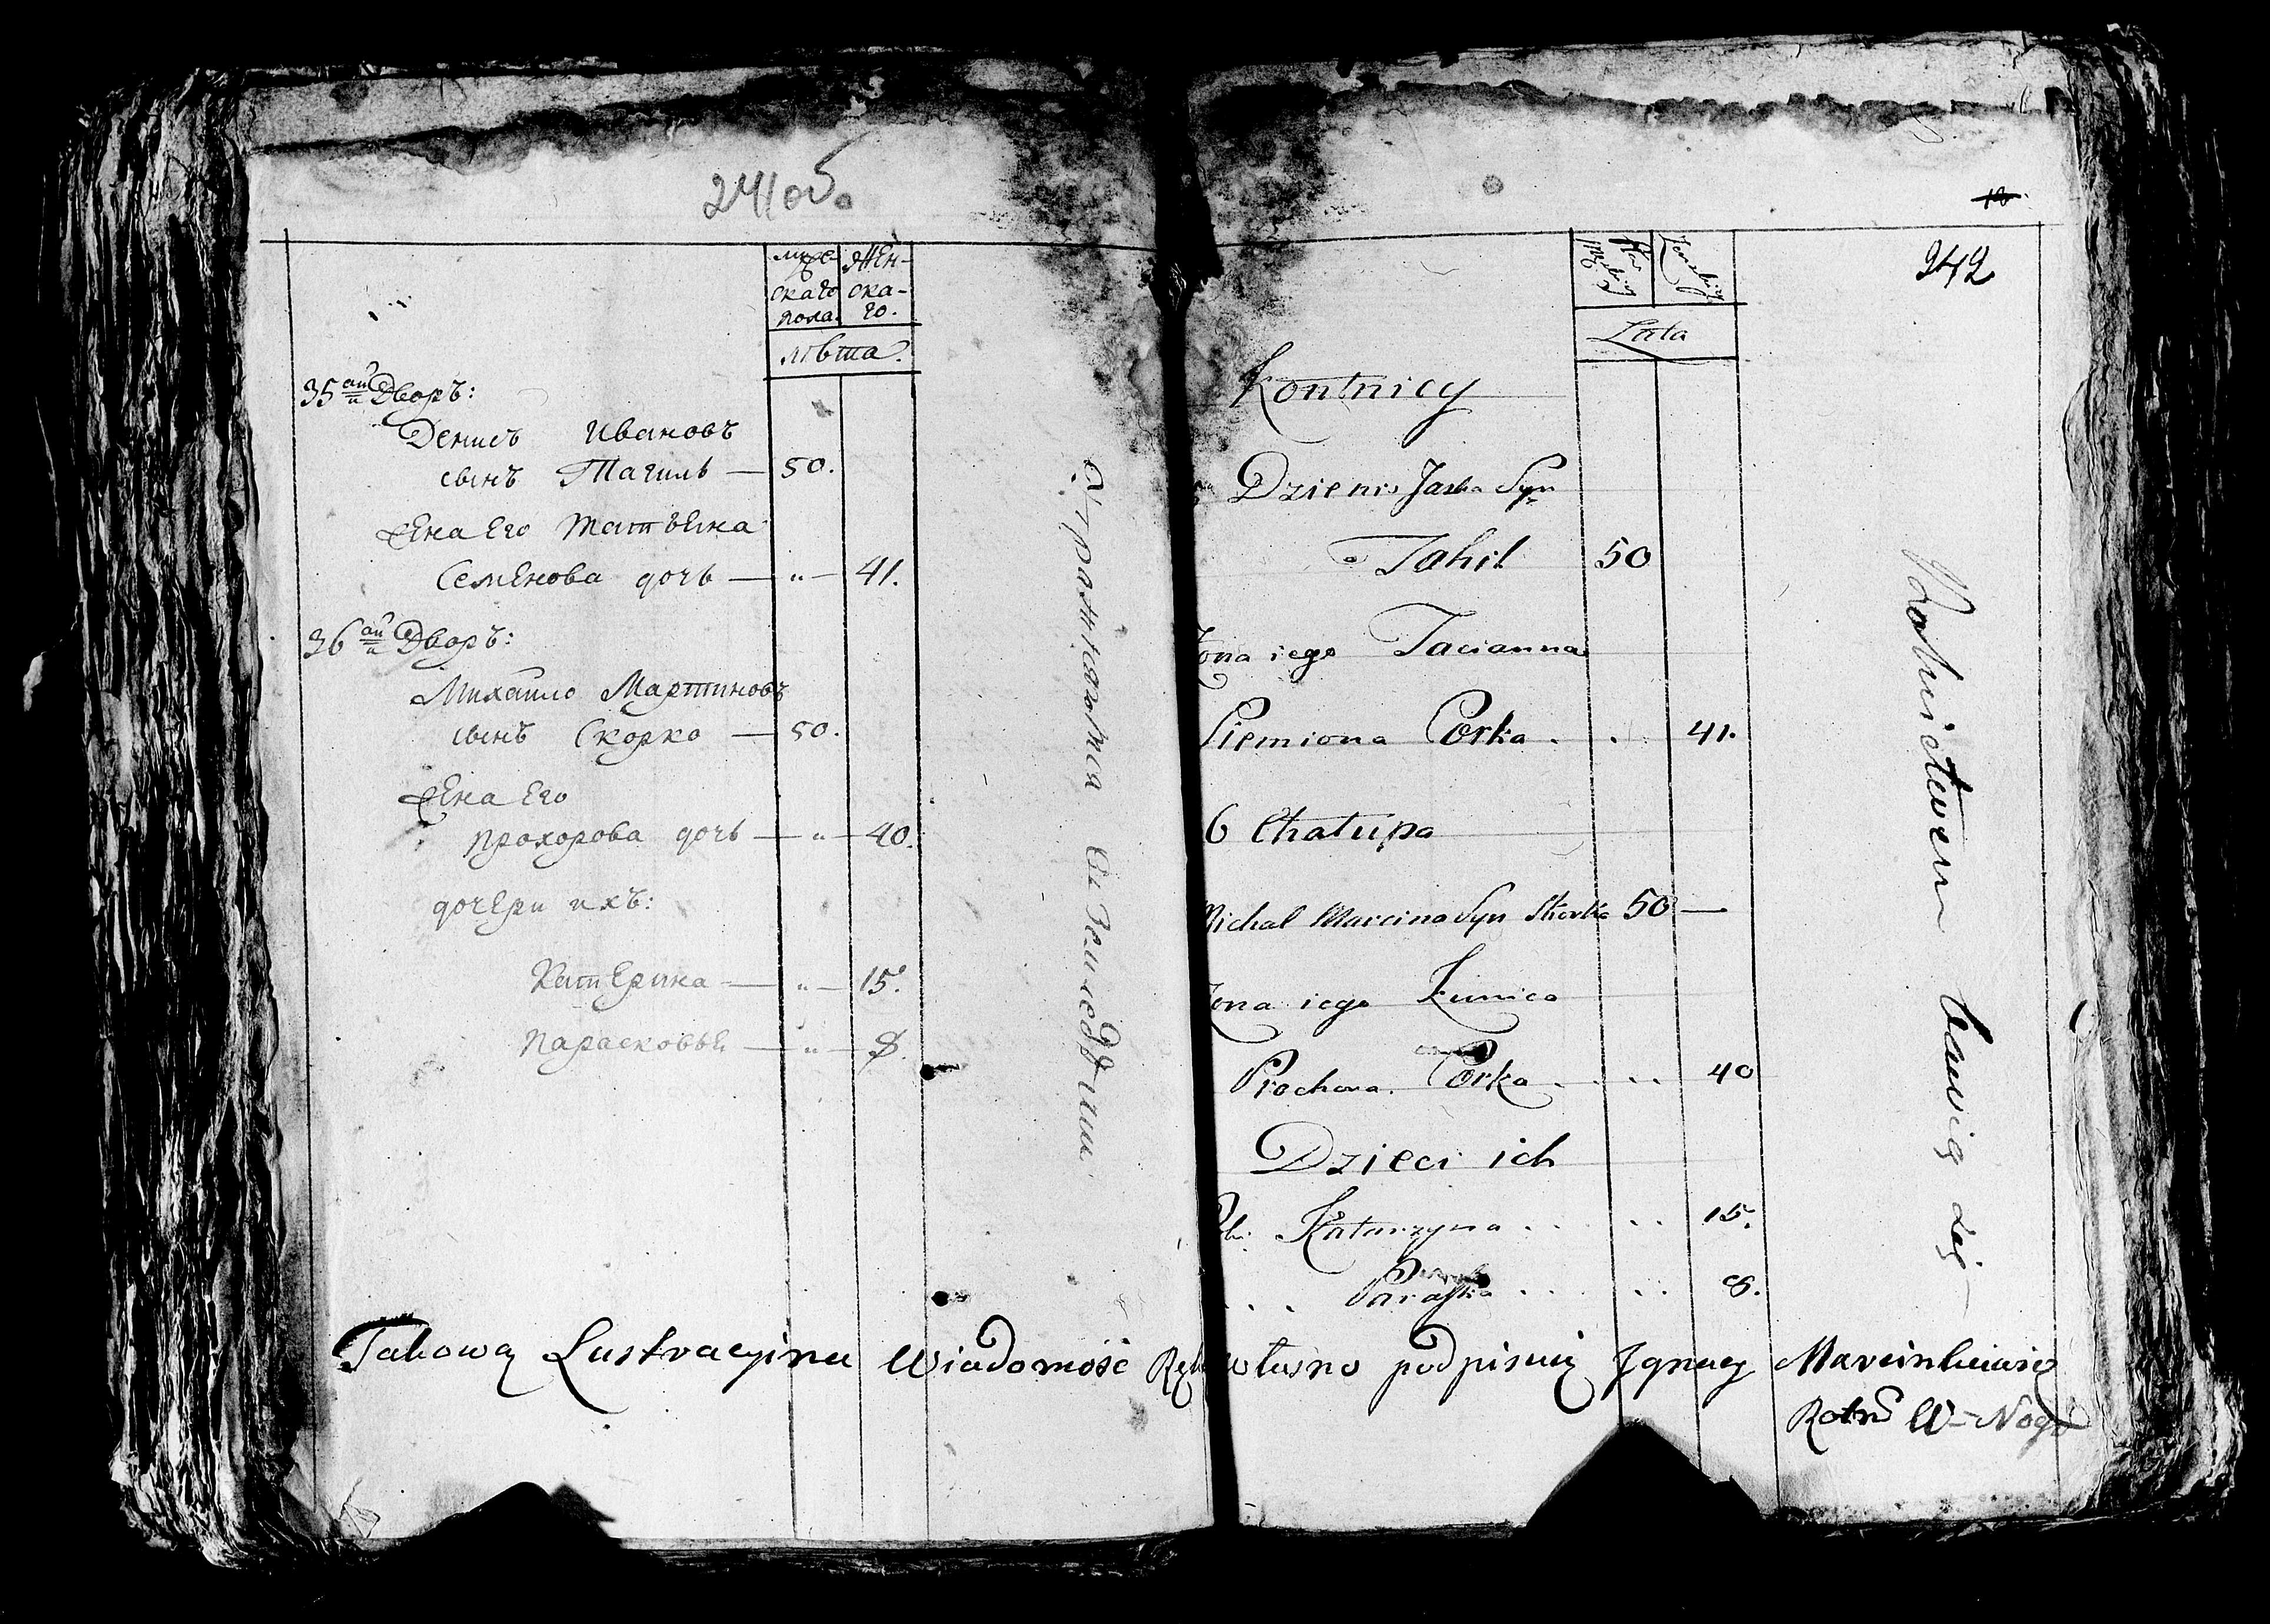 241 об.
муже- Жен-
скаго ска-
пола. го.
лѣта.
35ай Дворъ:
Денисъ Ивановъ
сынъ Тагиль — 50.
жена Его татьяна
Семенова дочь — „ — 41.
36ай Дворъ:
Михайло Мартиновъ
сынъ Скорко — 50.
жена Его
прохорова дочь — „ — 40.
дочери ихъ:
Катерина — „ — 15.
Парасковья — „ — 8.
Упражняются въ Земледѣлии
242
Lata
Kontnicy
Dzienis Jaska Syn
Tahil 50
Zona iego Tacianna
Siemiona Corka . . 41.
6 Chatupa
Michal Marcina Syn Skorko 50 —
Zona iego
Prochora Corka . . . . 40
Dzieci ich
Katarzyna . . . . . 15.
. . . Paraska . . . . 8.
Rolnictwem bawią się
Takową Lustracyina Wiadomość Ręką własno podpisuię Ignacy Marcinkiewicz
Rotm W